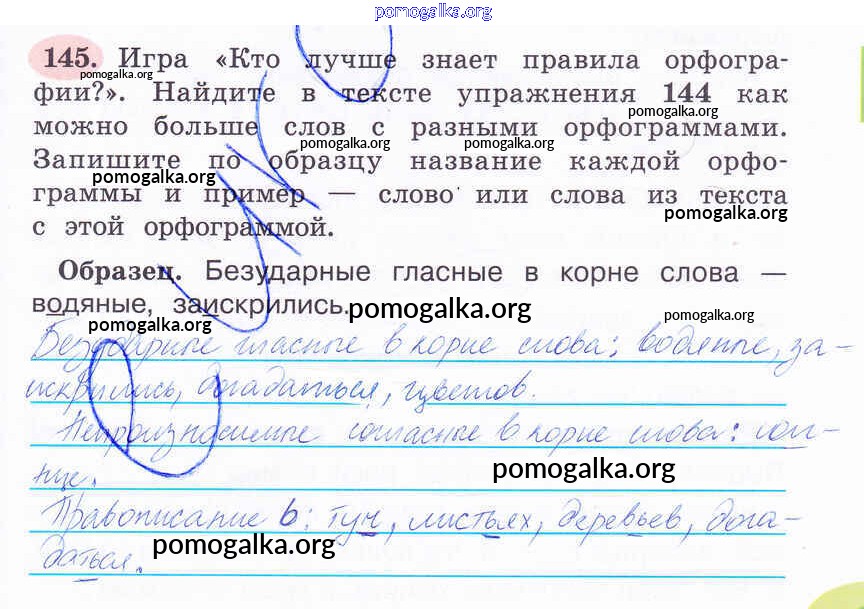 pomogalka.org
145. Игра «Кто лучше знает правила орфогра-
pomogalka.org
фии?». Найдите в тексте упражнения 144 как
pomogalka.org
можно больше слов с разными орфограммами.
pomogalka.org pomogalka.org
Запишите по образцу название каждой орфо-
pomogalka.org
граммы и пример — слово или слова из текста
pomogalka.org
с этой орфограммой.
Образец. Безударные гласные в корне слова —
водяные, заискрились.
pomogalka.org
pomogalka.org pomogalka.org
Безударные гласные в корне слова: водяные, за-
искрились, догадаться, цветов.
Непроизносимые согласные в корне слова: солн-
це.
pomogalka.org
Правописание ь: туч, листьях, деревьев, дога-
даться.
pomogalka.org